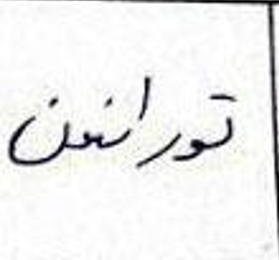 تورانعن